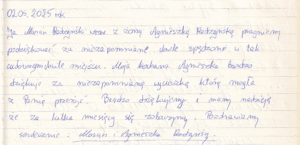 02.09.2025 rok
Ja Marcin Radzyński wraz z żoną Agnieszką Radzyńską pragniemy
podziękować za niezapomniane chwile spędzone w tak
cudownym miejscu. Moja kochana Agnieszka bardzo
dziękuje za niezapomnianą wycieczkę którą mogła
z Panią przeżyć. Bardzo dziękujemy i mamy nadzieję
że za kilka miesięcy się zobaczymy. Pozdrawiamy
serdecznie. Marcin i Agnieszka Radzyńscy.